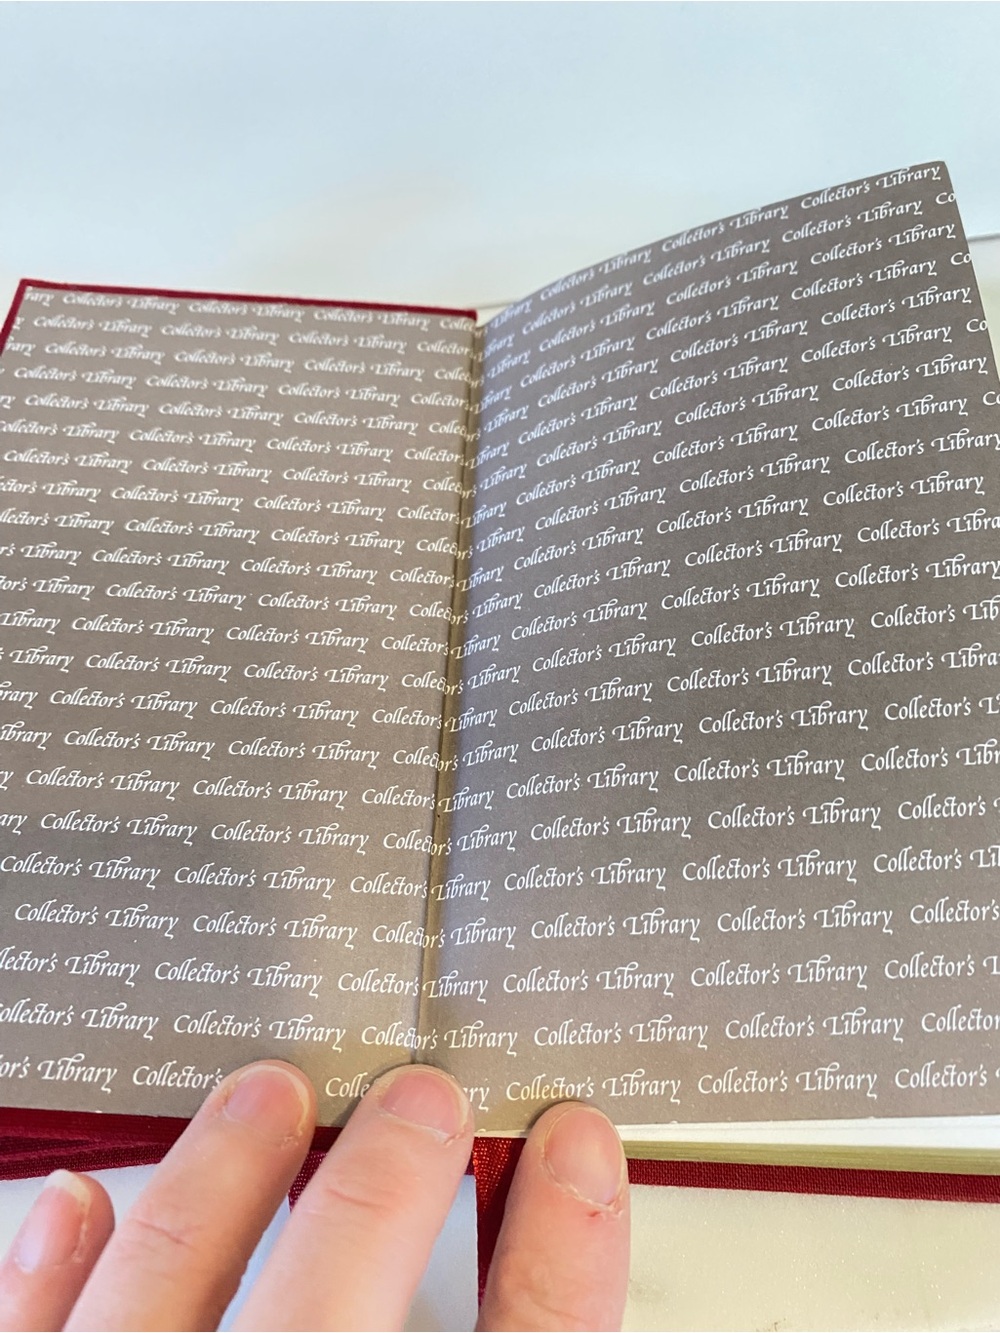 Collector's Library Collector's Library Collector's Library
Collector's Library Collector's Library Collector's Library Collector's
Collector's Library Collector's Library Collector's Library
Collector's Library Collector's Library Collector's Library Collector's
Collector's Library Collector's Library Collector's Library
Collector's Library Collector's Library Collector's Library Collector's
Collector's Library Collector's Library Collector's Library
Library Collector's Library Collector's Library Collector's
Library Collector's Library Collector's Library
Library Collector's Library Collector's Library Collector's
Library Collector's Library Collector's Library
Library Collector's Library Collector's Library Collector's
Library Collector's Library Collector's Library
Collector's Library Collector's Library Collector's
Collector's Library Collector's Library
Collector's Library Collector's Library Collector's
Collector's Library Collector's Library Collector's
Collector's Library Collector's Library Collector's
Collector's Library Collector's Library
Library Collector's Library Collector's
Collector's Library Collector's Library
Library Collector's
Collector's Library Collector's Library Collector's Library
Collector's Library Collector's Library Collector's Library
Collector's Library Collector's Library Collector's Library
Collector's Library Collector's Library Collector's Library
Collector's Library Collector's Library Collector's Library
Collector's Library Collector's Library Collector's Library
Collector's Library Collector's Library Collector's Library
Collector's Library Collector's Library Collector's Library
Collector's Library Collector's Library Collector's Library
Collector's Library Collector's Library Collector's Library
Collector's Library Collector's Library Collector's
Collector's Library Collector's Library Collector's Library
Collector's Library Collector's Library Collector's
Library Collector's Library Collector's Library Collector's
Library Collector's Library Collector's Library Collector's
Library Collector's Library Collector's Library Collector's
Library Collector's Library Collector's Library Collector's
Library Collector's Library Collector's Library Collector's
Library Collector's Library Collector's Library Collector's
Library Collector's Library Collector's Library Collector's
Library Collector's Library Collector's Library
Collector's Library Collector's Library Collector's